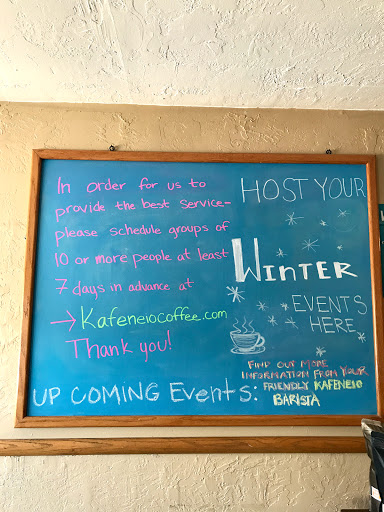 In order for us to
provide the best service-
please schedule groups of
10 or more people at least
7 days in advance at
→ Kafeneiocoffee.com
Thank you!
HOST YOUR
WINTER
EVENTS
HERE
FIND OUT MORE
INFORMATION FROM YOUR
FRIENDLY KAFENEIO
BARISTA
UP COMING Events: